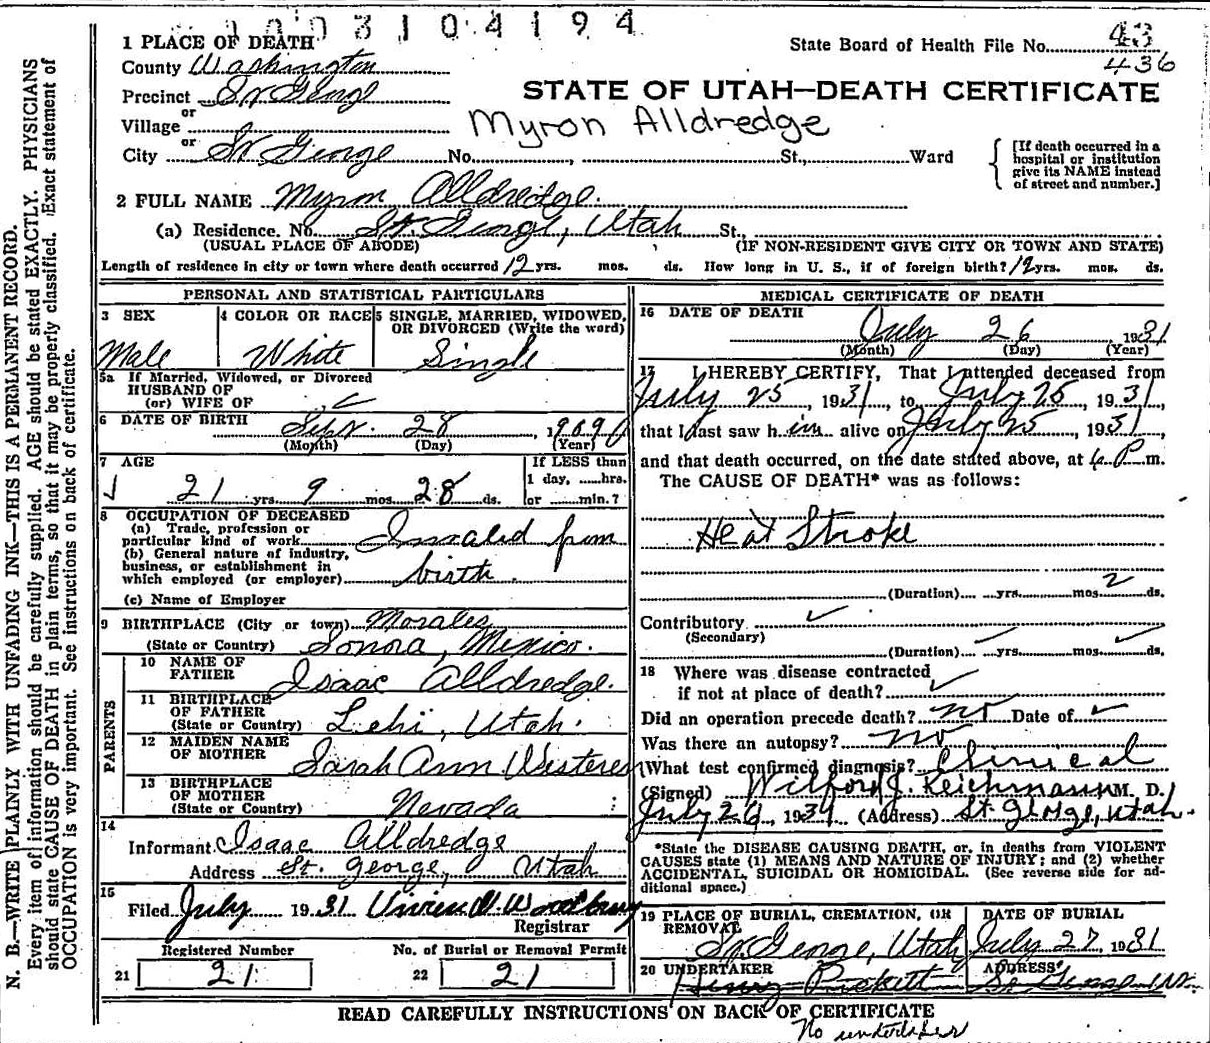 1003104194
1 PLACE OF DEATH
State Board of Health File No. 43
436
County Washington
Precinct St George
or
Village
or
STATE OF UTAH—DEATH CERTIFICATE
Myron Alldredge
City St George No. , St., Ward
[If death occurred in a hospital or institution give its NAME instead of street and number.]
2 FULL NAME Myron Alldredge.
(a) Residence. No. St. George, Utah St.,
(USUAL PLACE OF ABODE) (IF NON-RESIDENT GIVE CITY OR TOWN AND STATE)
Length of residence in city or town where death occurred 12 yrs. mos. ds. How long in U. S., if of foreign birth? 12 yrs. mos. ds.
PERSONAL AND STATISTICAL PARTICULARS
3 SEX
4 COLOR OR RACE
5 SINGLE, MARRIED, WIDOWED, OR DIVORCED (Write the word)
Male White Single
5a If Married, Widowed, or Divorced
HUSBAND OF
(or) WIFE OF
6 DATE OF BIRTH Sept. 28, 1909
(Month) (Day) (Year)
7 AGE
If LESS than
1 day, ......hrs.
21 yrs. 9 mos. 28 ds. or ......min.?
8 OCCUPATION OF DECEASED
(a) Trade, profession or
particular kind of work Invalid from
(b) General nature of industry,
business, or establishment in
which employed (or employer) birth.
(c) Name of Employer
9 BIRTHPLACE (City or town) Morales
(State or Country) Sonora, Mexico.
PARENTS
10 NAME OF
FATHER Isaac Alldredge.
11 BIRTHPLACE
OF FATHER
(State or Country) Lehi, Utah.
12 MAIDEN NAME
OF MOTHER Sarah Ann
13 BIRTHPLACE
OF MOTHER
(State or Country) Nevada
14
Informant Isaac Alldredge
Address St. George, Utah
15
Filed July 1931 Vivien W. Woodbury
Registrar
Registered Number No. of Burial or Removal Permit
21 21 22 21
MEDICAL CERTIFICATE OF DEATH
16 DATE OF DEATH
July 26, 1931
(Month) (Day) (Year)
17 I HEREBY CERTIFY, That I attended deceased from
July 25, 1931, to July 25, 1931,
that I last saw him alive on July 25, 1931,
and that death occurred, on the date stated above, at P.m.
The CAUSE OF DEATH* was as follows:
Heat Stroke
(Duration) yrs. mos. 2 ds.
Contributory
(Secondary)
(Duration) yrs. mos. ds.
18 Where was disease contracted
if not at place of death?
Did an operation precede death? no Date of
Was there an autopsy? no
What test confirmed diagnosis? Clinical
(Signed) Wilford J. Reichmann M. D.
July 26, 1931 (Address) St. George, Utah.
*State the DISEASE CAUSING DEATH, or, in deaths from VIOLENT
CAUSES state (1) MEANS AND NATURE OF INJURY; and (2) whether
ACCIDENTAL, SUICIDAL OR HOMICIDAL. (See reverse side for ad-
ditional space.)
19 PLACE OF BURIAL, CREMATION, OR
REMOVAL
DATE OF BURIAL
St. George, Utah July 27, 1931
20 UNDERTAKER ADDRESS
Henry Pickett St George Ut.
READ CAREFULLY INSTRUCTIONS ON BACK OF CERTIFICATE
No undertaker
N. B.—WRITE PLAINLY WITH UNFADING INK—THIS IS A PERMANENT RECORD.
Every item of information should be carefully supplied. AGE should be stated EXACTLY. PHYSICIANS
should state CAUSE OF DEATH in plain terms, so that it may be properly classified. Exact statement of
OCCUPATION is very important. See instructions on back of certificate.